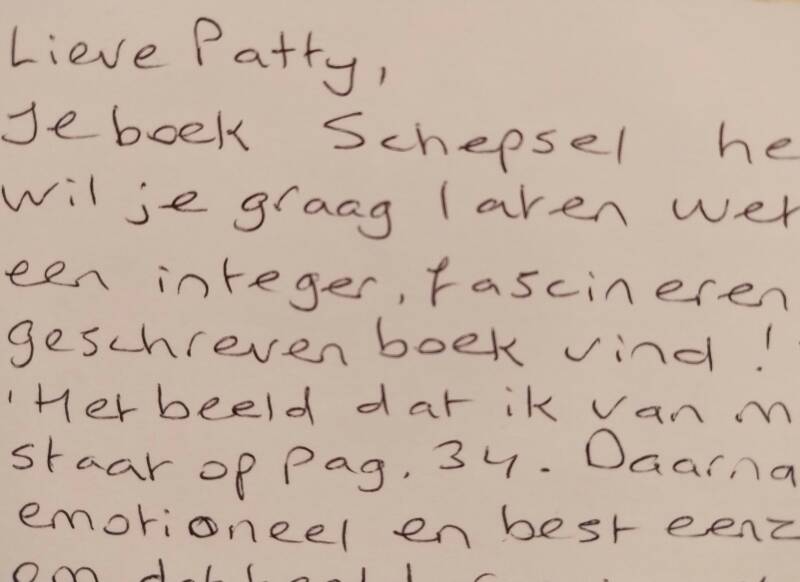 Lieve Patty,
Je boek Schepsel he
wil je graag laten wet
een integer, fascineren
geschreven boek vind!
'Het beeld dat ik van m
staat op pag. 34. Daarna
emotioneel en best eenz
om dat